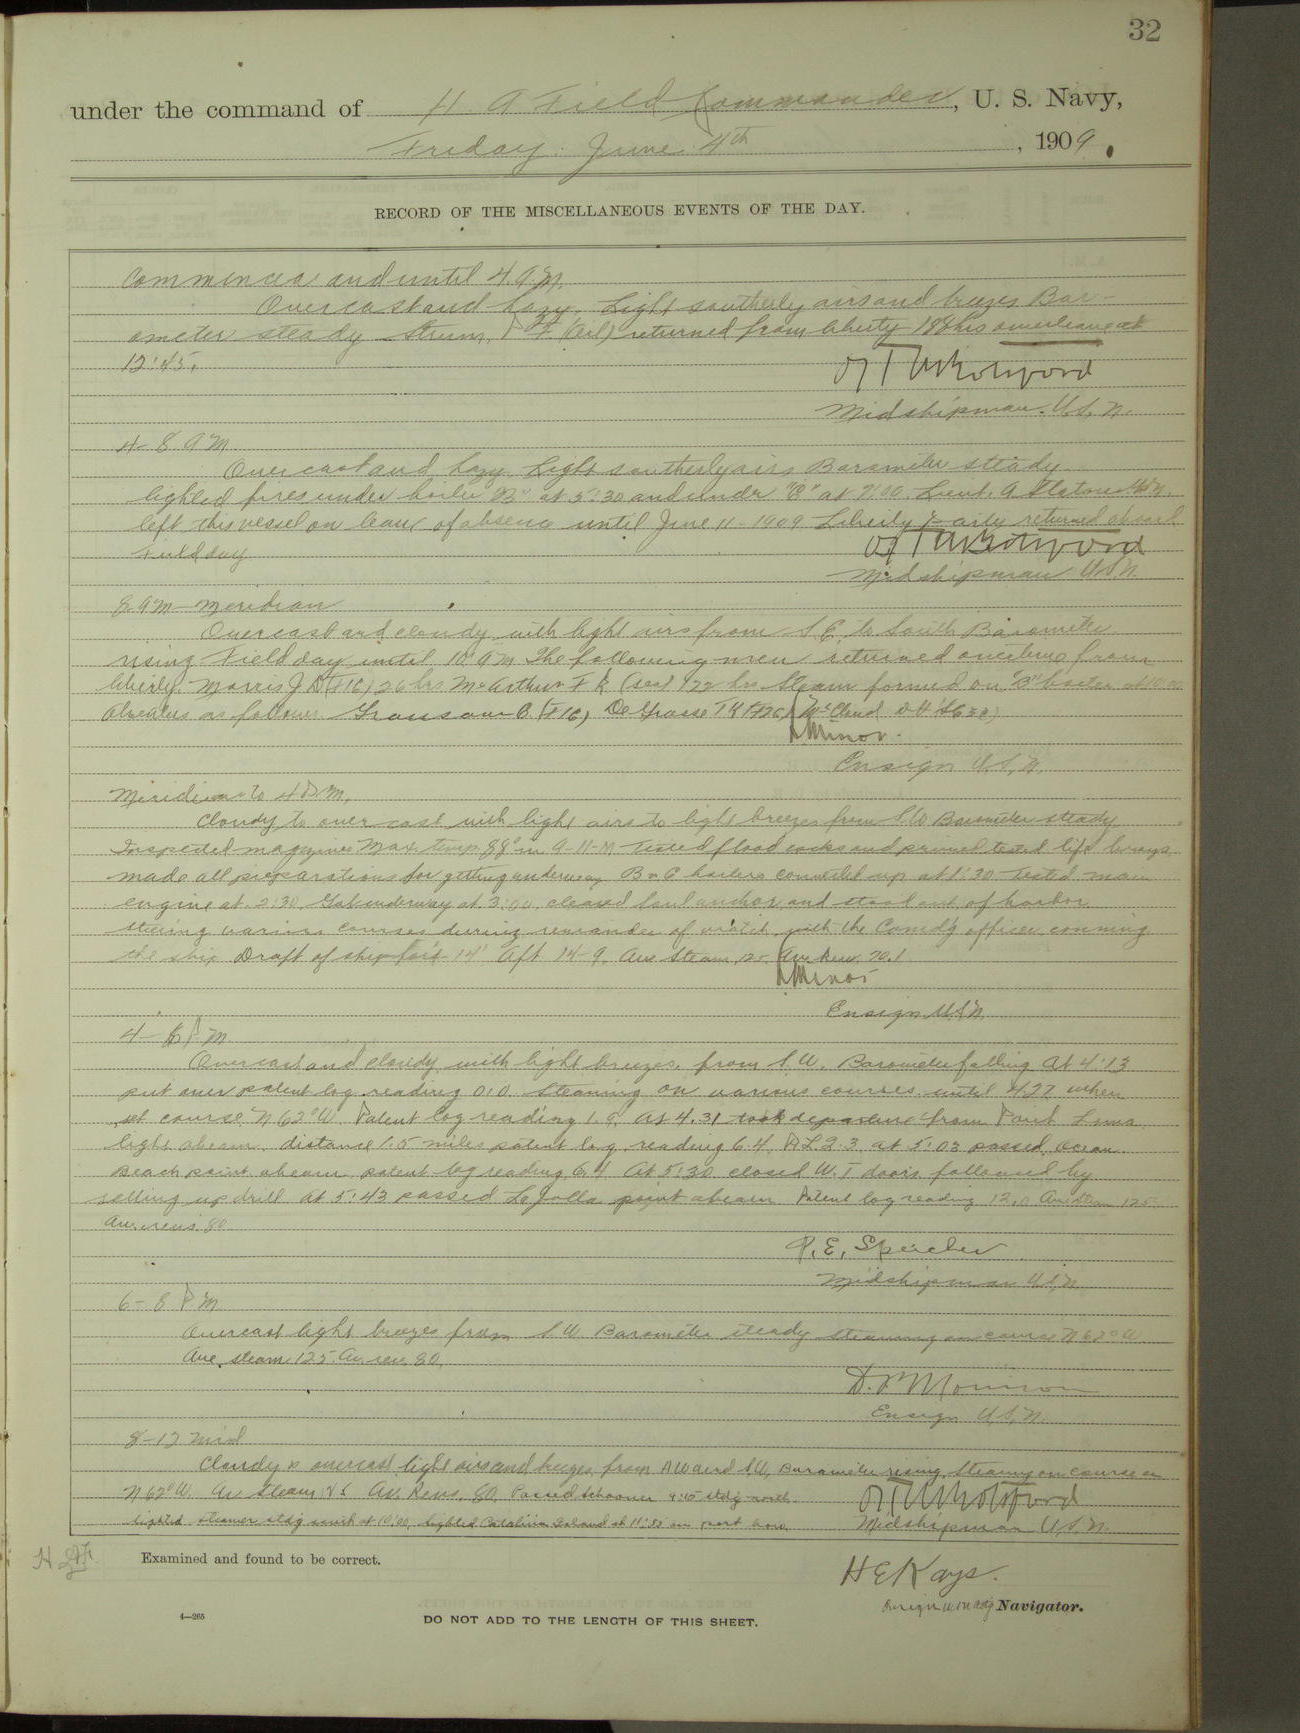 32
under the command of H A Field Commander, U. S. Navy,
Friday June 4th, 1909.
RECORD OF THE MISCELLANEOUS EVENTS OF THE DAY.
Commences and until 4 A.M.
Overcast and hazy. Light southerly airs and breezes Bar-
ometer steady returned from liberty hrs overleave at
12:45.
Midshipman U.S.N.
4-8 AM
Overcast and hazy Light southerly airs Barometer steady
lighted fires under boiler "B" at 5:30 and under at Lieut. A
left this vessel on leave of absence until June 11-1909 Liberty Party returned aboard
Field day
Midshipman U.S.N.
8 AM - Meridian
Overcast and cloudy with light airs from S.E. to South Barometer
rising Field day until 10 AM The following men returned overtime from
liberty. Morris J D (F1C) 26 hrs McArthur F R (sea) 72 hrs Steam formed on "B" boiler at
as follows C. (F1C) De Grasse McCloud D H
Minor.
Ensign U.S.N.
Meridian to 4 P.M.
Cloudy to over cast with light airs to light breezes from S W Barometer steady
Inspected magazines Max. temp. 88° in A-11-M Tested flood cocks and tested life buoys
made all preparations for getting underway B & C boilers connected up at 1:30 tested main
engine at 2:30 Got underway at 3:00, cleared foul anchor and stood out of harbor
steering various courses during remainder of watch with the Comd'g officer conning
the ship Draft of ship for'd 14' Aft 14-9. Ave Steam 125 Ave Rev. 70.1
Minor
Ensign U.S.N.
4-6 P.M
Overcast and cloudy with light breezes from S.W. Barometer falling At 4:13
put over patent log reading 0.0 Steaming on various courses until 4.27 when
set course N 62° W Patent log reading 1.9. At 4.31 took departure from Point Loma
light abeam distance 1.5 miles patent log reading at 5:03 passed Ocean
Beach point abeam patent log reading 6.4 At 5:30 closed W.T doors followed by
setting up drill at 5:43 passed La Jolla point abeam Patent log reading 12.0 Ave Steam 125
Ave. revs. 80
R. E. Speicher
Midshipman U.S.N.
6-8 P M
Overcast light breezes from S W Barometer steady steaming on course N 62° W
Ave. steam 125. Av. rev. 80.
D. Morrison
Ensign U.S.N.
8-12 Mid
Cloudy to overcast light airs and breezes from N W and S.W. Barometer rising. Steaming on course on
N 62° W. Av Steam 125 Av. Revs. 80, Passed Schooner 9:15 st'dg north
Sighted steamer st'dg south at 10:00, Sighted Catalina Island at on port bow,
Midshipman U.S.N.
Examined and found to be correct.
H E Kays.
Ensign Navigator.
4—265
DO NOT ADD TO THE LENGTH OF THIS SHEET.